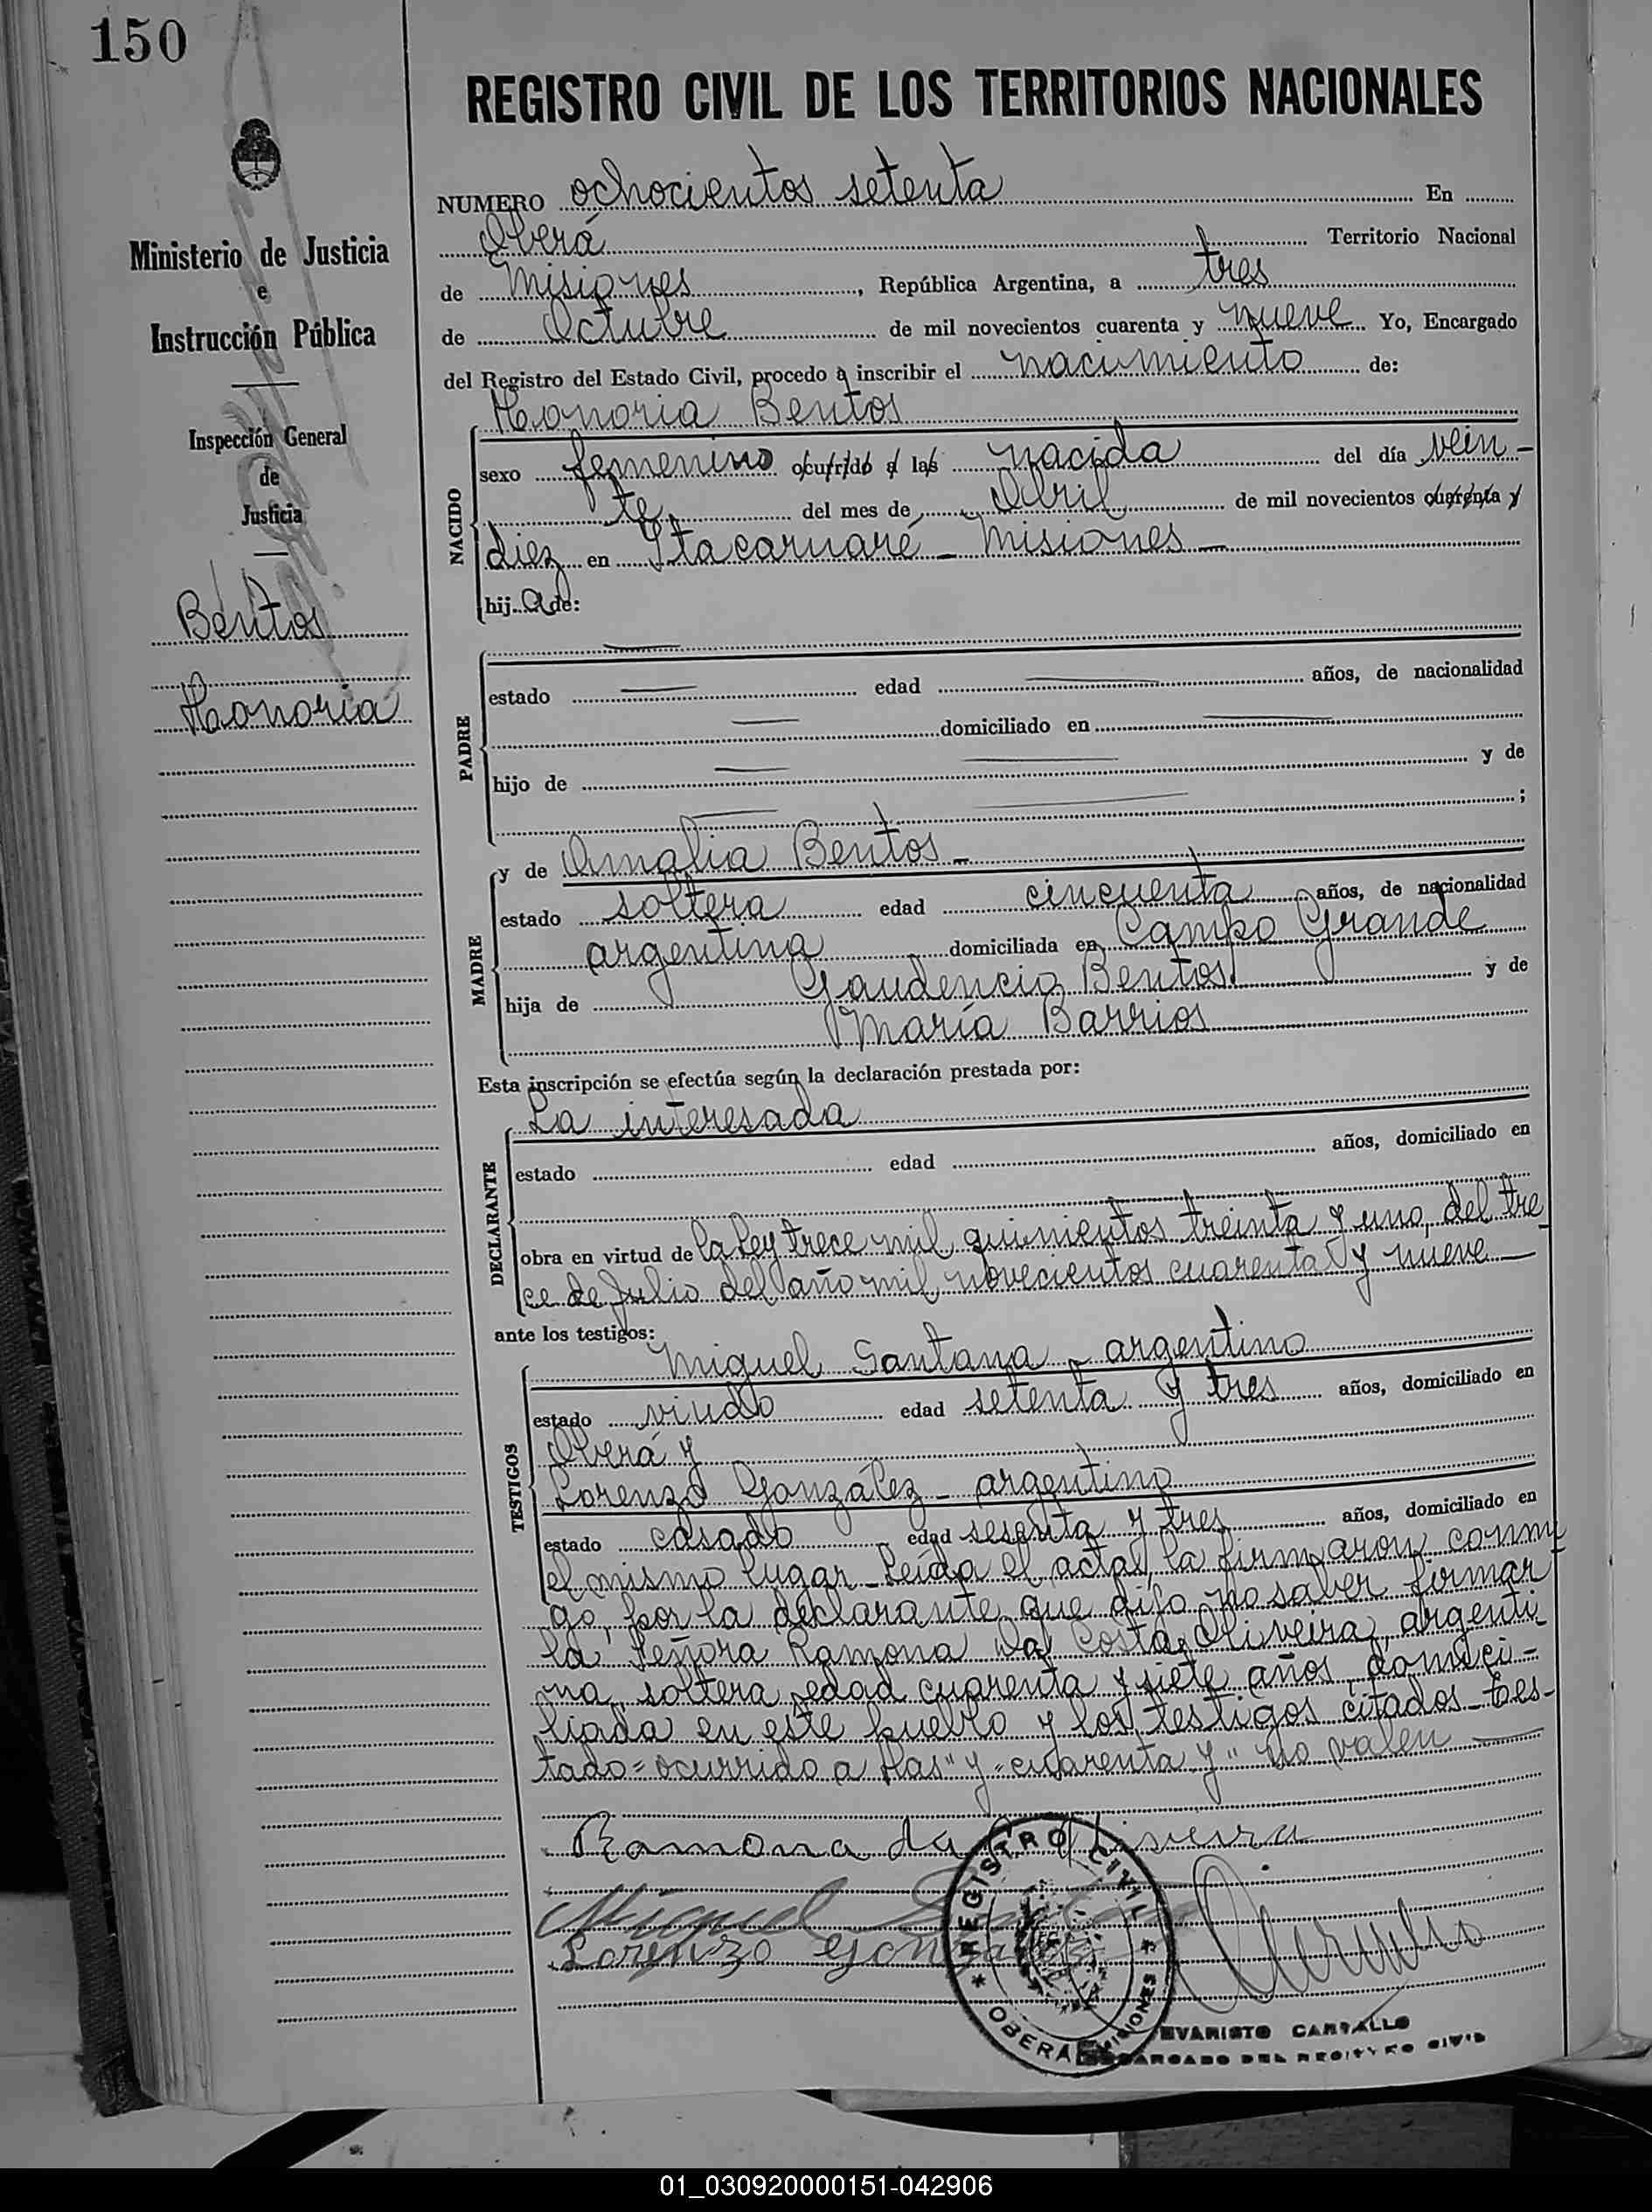 150
REGISTRO CIVIL DE LOS TERRITORIOS NACIONALES
Ministerio de Justicia
e
Instrucción Pública
Inspección General
de
Justicia
Bentos
Honoria
NUMERO ochocientos setenta En
Oberá Territorio Nacional
de Misiones, República Argentina, a tres
de Octubre de mil novecientos cuarenta y nueve Yo, Encargado
del Registro del Estado Civil, procedo a inscribir el nacimiento de:
Honoria Bentos
NACIDO
sexo femenino ocurrido a las nacida del día vein-
te del mes de Abril de mil novecientos cuarenta y
diez en Itacaruaré - Misiones -
hija de:
PADRE
estado edad años, de nacionalidad
domiciliado en
hijo de y de
;
MADRE
y de Amalia Bentos -
estado soltera edad cincuenta años, de nacionalidad
argentina domiciliada en Campo Grande
hija de Gaudencio Bentos y de
María Barrios
Esta inscripción se efectúa según la declaración prestada por:
DECLARANTE
La interesada
estado edad años, domiciliado en
obra en virtud de la Ley trece mil quinientos treinta y uno, del tre
ce de Julio del año mil novecientos cuarenta y nueve
ante los testigos:
TESTIGOS
Miguel Santana - argentino
estado viudo edad setenta y tres años, domiciliado en
Oberá y
Lorenzo González - argentino
estado casado edad sesenta y tres años, domiciliado en
el mismo lugar - Leída el acta, la firmaron conmi
go, por la declarante que dijo no saber firmar
la Señora Ramona da Costa Oliveira, argenti
na, soltera, edad cuarenta y siete años, domici=
liada en este pueblo y los testigos citados - Tes-
tado = ocurrido a las" y "cuarenta y" no valen
Ramona da C Oliveira
Miguel
Lorenzo Gonzalez
* REGISTRO CIVIL * OBERA MISIONES
EVARISTO CARVALLO
ENCARGADO DEL REGISTRO CIVIL
01_030920000151-042906